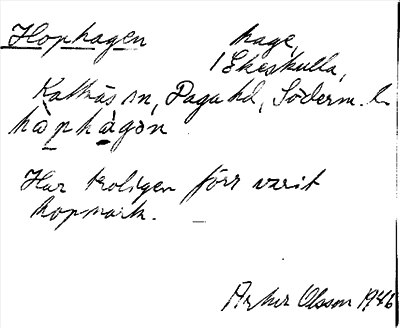 Hophagen hage,
i Ekeskulla,
Kattnäs sn, Daga hd, Söderm. l.
hòphàgən
Har troligen förr varit
hopmark.
Arthur Olsson 1946